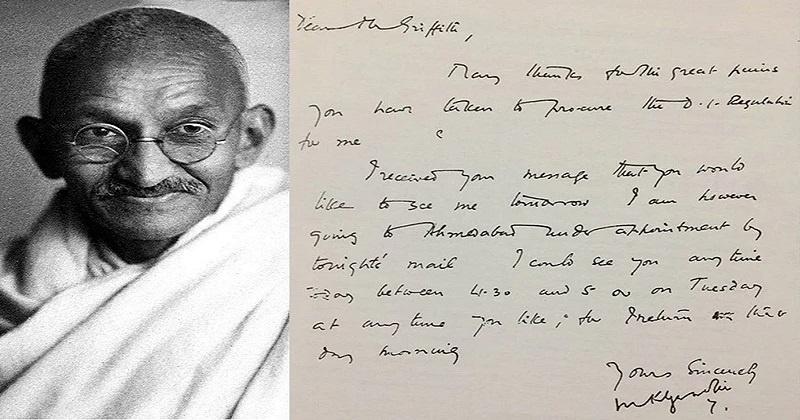 Dear Mr Griffith,
Many thanks for the great pains
you have taken to procure the D.I. Regulation
for me
I received your message that you would
like to see me tomorrow I am however
going to Ahmedabad under appointment by
tonight's mail I could see you any time
between 4.30 and 5 on Tuesday
at any time you like, for I return
day morning
Yours Sincerely
MKGandhi